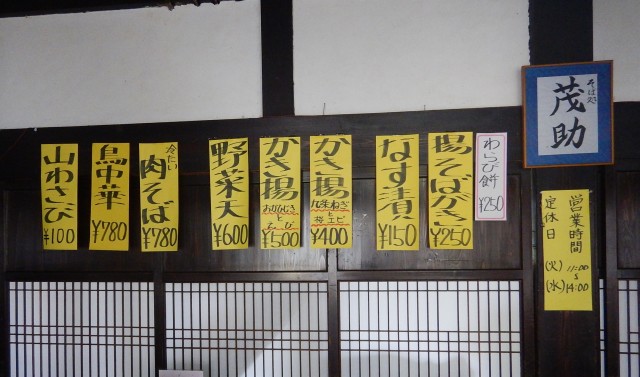 山わさび
¥100
鳥中華
¥780
冷たい
肉そば
¥780
野菜天
¥600
かき揚
と
¥500
かき揚
九条ねぎ
と
桜エビ
¥400
なす漬
¥150
揚そばがき
¥250
わらび餅
¥250
そば処
茂助
営業時間
11:00
〜
14:00
定休日
(火)
(水)